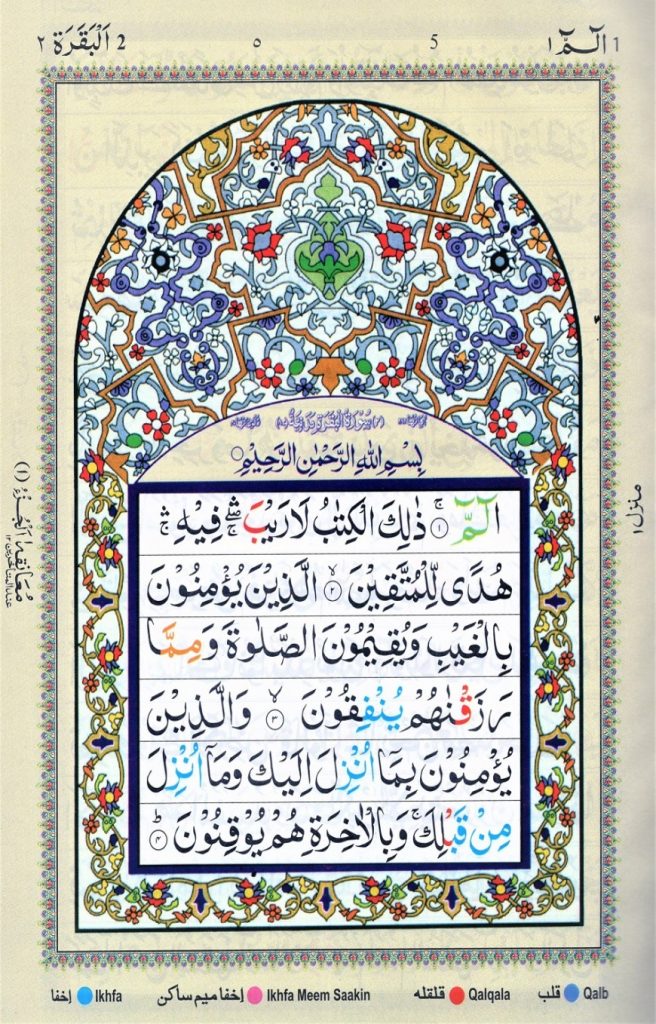 الٓمّٓ ١ 1
5
٥
2 اَلْبَقَرَة ٢
سُوْرَةُ الْبَقَرَةِ مَدَنِيَّةٌ
بِسْمِ اللّٰهِ الرَّحْمٰنِ الرَّحِيْمِ
الٓمّٓ ۚ‏﴿۱﴾ ذٰلِكَ الْكِتٰبُ لَا رَيْبَ ۛۖ فِيْهِ ۛۚ
هُدًى لِّلْمُتَّقِيْنَ ۙ‏﴿۲﴾ الَّذِيْنَ يُؤْمِنُوْنَ
بِالْغَيْبِ وَيُقِيْمُوْنَ الصَّلٰوةَ وَمِمَّا
رَزَقْنٰهُمْ يُنْفِقُوْنَ ۙ‏﴿۳﴾ وَالَّذِيْنَ
يُؤْمِنُوْنَ بِمَاۤ اُنْزِلَ اِلَيْكَ وَمَاۤ اُنْزِلَ
مِنْ قَبْلِكَ ۚ وَبِالْاٰخِرَةِ هُمْ يُوْقِنُوْنَ ؕ‏﴿۴﴾
منزل ١
معانقة ١
عند المتأخرين ١٢
اخفا Ikhfa
اخفا میم ساکن Ikhfa Meem Saakin
قلقله Qalqala
قلب Qalb